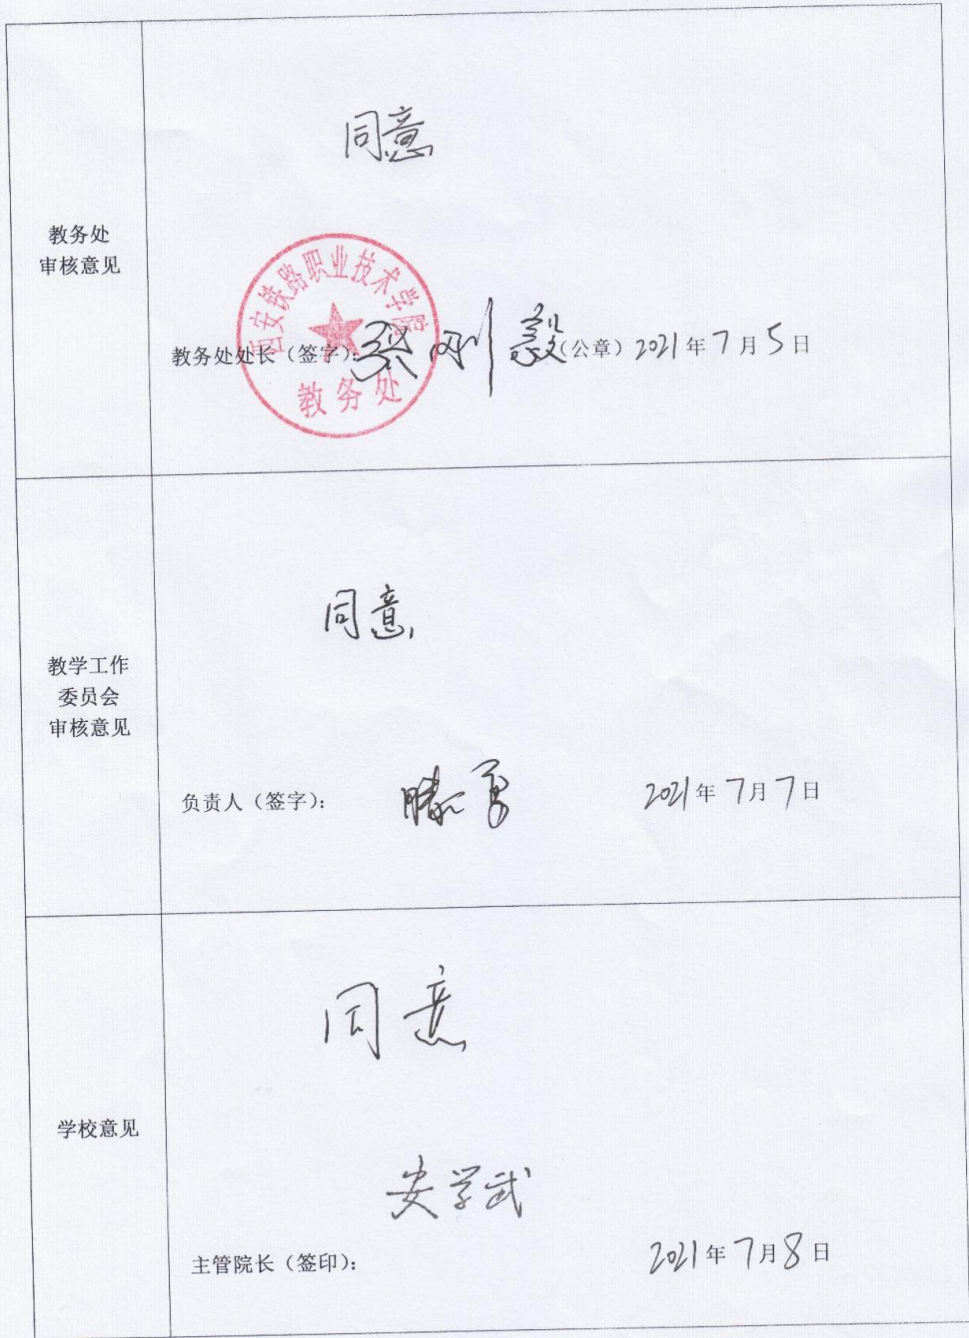 教务处
审核意见
同意
西安铁路职业技术学院
教务处
教务处处长（签字）： 梁刚毅 （公章）2021年7月5日
教学工作
委员会
审核意见
同意
负责人（签字）： 滕勇 2021年7月7日
学校意见
同意
安学武
主管院长（签印）： 2021年7月8日